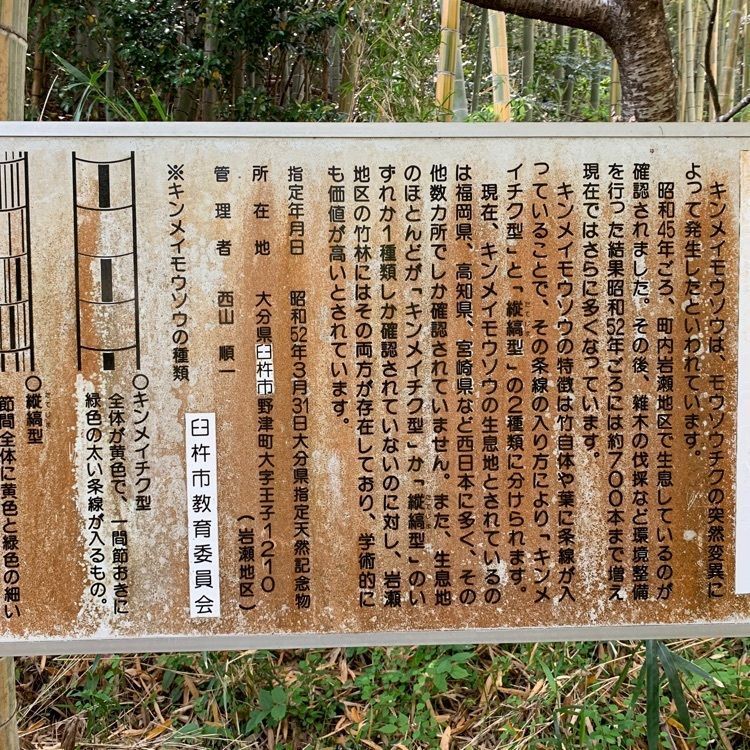 キンメイモウソウは、モウソウチクの突然変異に
よって発生したといわれています。
昭和45年ごろ、町内岩瀬地区で生息しているのが
確認されました。その後、雑木の伐採など環境整備
を行った結果昭和52年ごろには約700本まで増え
現在ではさらに多くなっています。
キンメイモウソウの特徴は竹自体や葉に条線が入
っていることで、その条線の入り方により「キンメ
イチク型」と「縦縞型」の2種類に分けられます。
現在、キンメイモウソウの生息地とされているの
は福岡県、高知県、宮崎県など西日本に多く、その
他数カ所でしか確認されていません。また、生息地
のほとんどが「キンメイチク型」か「縦縞型」のい
ずれか1種類しか確認されていないのに対し、岩瀬
地区の竹林にはその両方が存在しており、学術的に
も価値が高いとされています。
指定年月日 昭和52年3月31日大分県指定天然記念物
所在地 大分県臼杵市野津町大字王子1210
(岩瀬地区)
管理者 西山順一
臼杵市教育委員会
※キンメイモウソウの種類
○キンメイチク型
全体が黄色で、一間節おきに
緑色の太い条線が入るもの。
○縦縞型
節間全体に黄色と緑色の細い